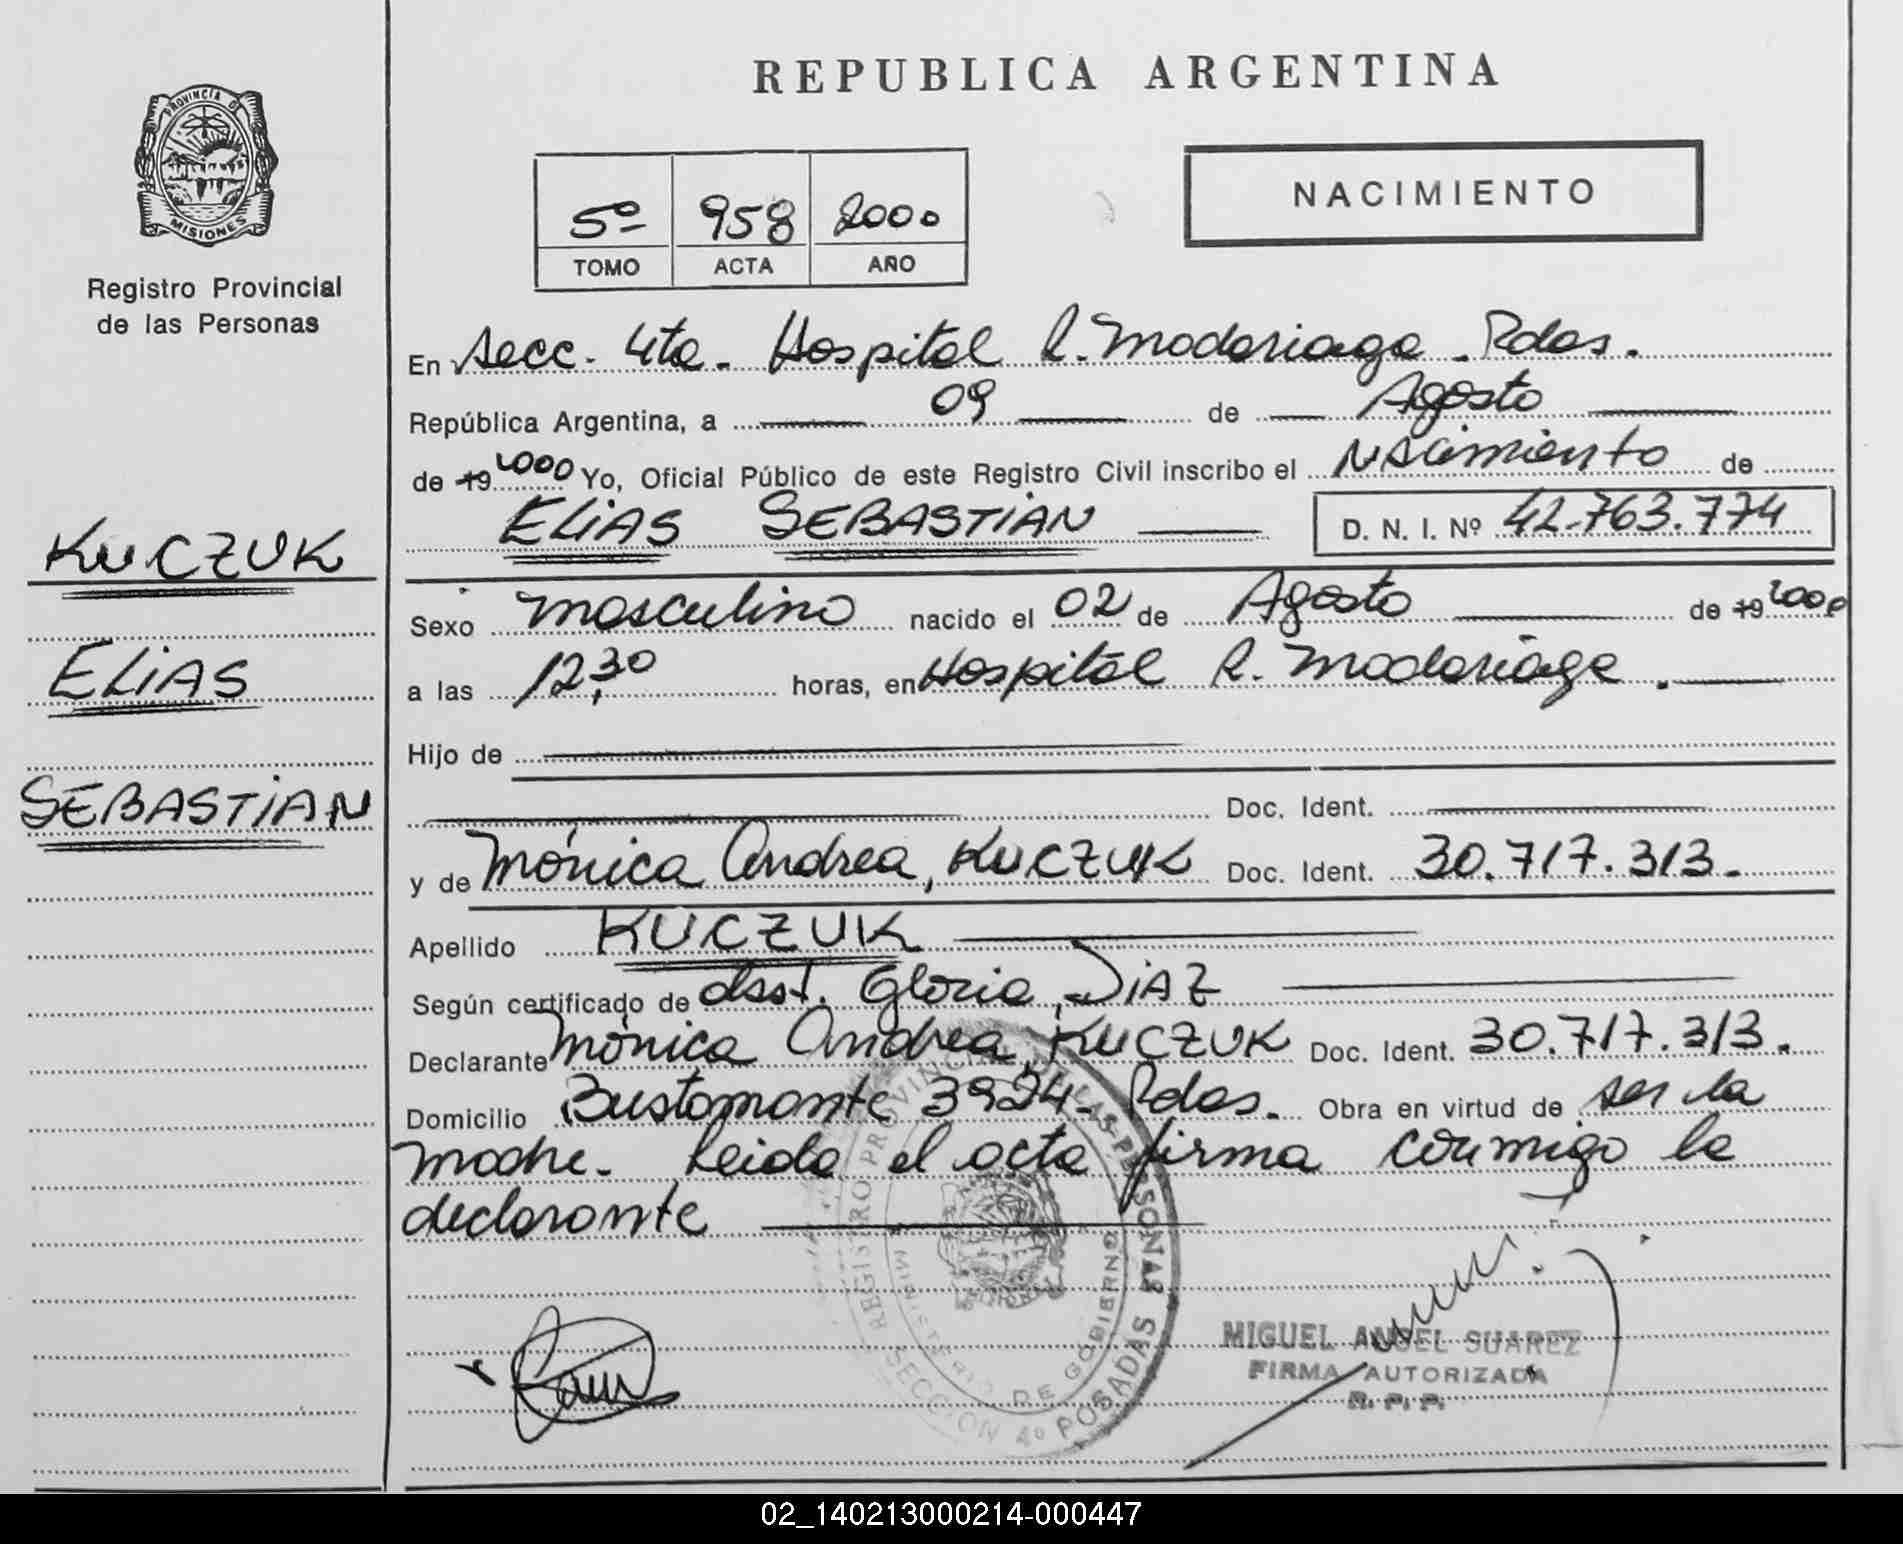 PROVINCIA DE
MISIONES
Registro Provincial
de las Personas
KUCZUK
ELIAS
SEBASTIAN
REPUBLICA ARGENTINA
5º 958 2000
TOMO ACTA AÑO
NACIMIENTO
En Secc. 4ta. Hospital R. Madariaga. Pdas.
República Argentina, a 09 de Agosto
de 19 2000 Yo, Oficial Público de este Registro Civil inscribo el Nacimiento de
ELIAS SEBASTIAN D. N. I. Nº 42.763.774
Sexo masculino nacido el 02 de Agosto de 19 2000
a las 12,30 horas, en Hospital R. Madariaga.
Hijo de
Doc. Ident.
y de Mónica Andrea, KUCZUK Doc. Ident. 30.717.313.
Apellido KUCZUK
Según certificado de obst. Gloria, DIAZ
Declarante Mónica Andrea KUCZUK Doc. Ident. 30.717.313.
Domicilio Bustamante 3924- Pdas. Obra en virtud de ser la
madre. Leida el acta firma conmigo la
declarante
REGISTRO PROVINCIAL DE LAS PERSONAS
MINISTERIO DE GOBIERNO
SECCION 4º POSADAS
MIGUEL ANGEL SUAREZ
FIRMA AUTORIZADA
R. P. P.
02_140213000214-000447